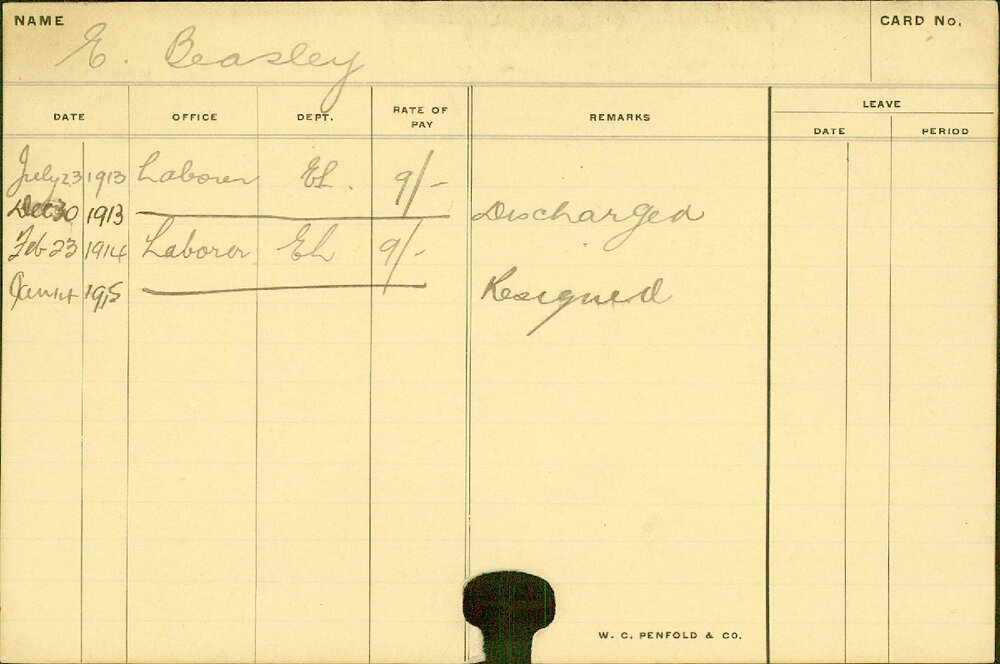 NAME
CARD No.
E. Beasley
DATE OFFICE DEPT. RATE OF PAY REMARKS LEAVE
DATE PERIOD
July 23 1913 Laborer EL. 9/-
Dec 30 1913 Discharged
Feb 23 1914 Laborer EL 9/-
Jan 14 1915 Resigned
W. C. PENFOLD & CO.